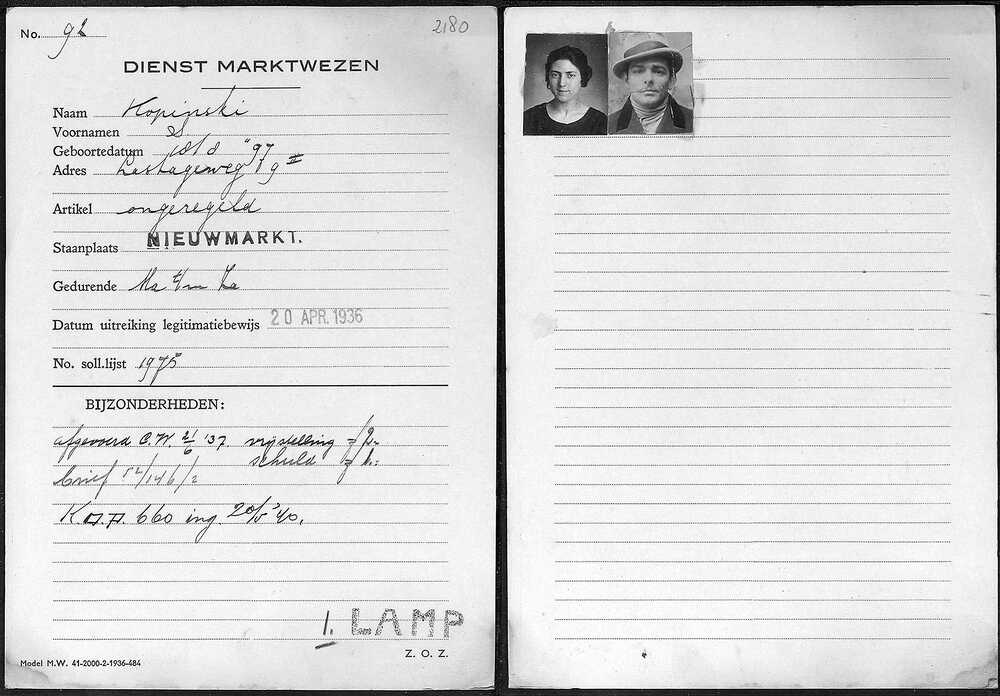 No. 92
2180
DIENST MARKTWEZEN
Naam Kopinski
Voornamen S
Geboortedatum "97
Adres Lastageweg 19 II
Artikel ongeregeld
Staanplaats NIEUWMARKT.
Gedurende Ma t/m Za
Datum uitreiking legitimatiebewijs 20 APR. 1936
No. soll.lijst 1975
BIJZONDERHEDEN:
afgevoerd C.W. 21/6 '37. vrijstelling
schuld
brief 52/146/2
660 ing. 20/5 '40.
1. LAMP
Z. O. Z.
Model M.W. 41-2000-2-1936-484